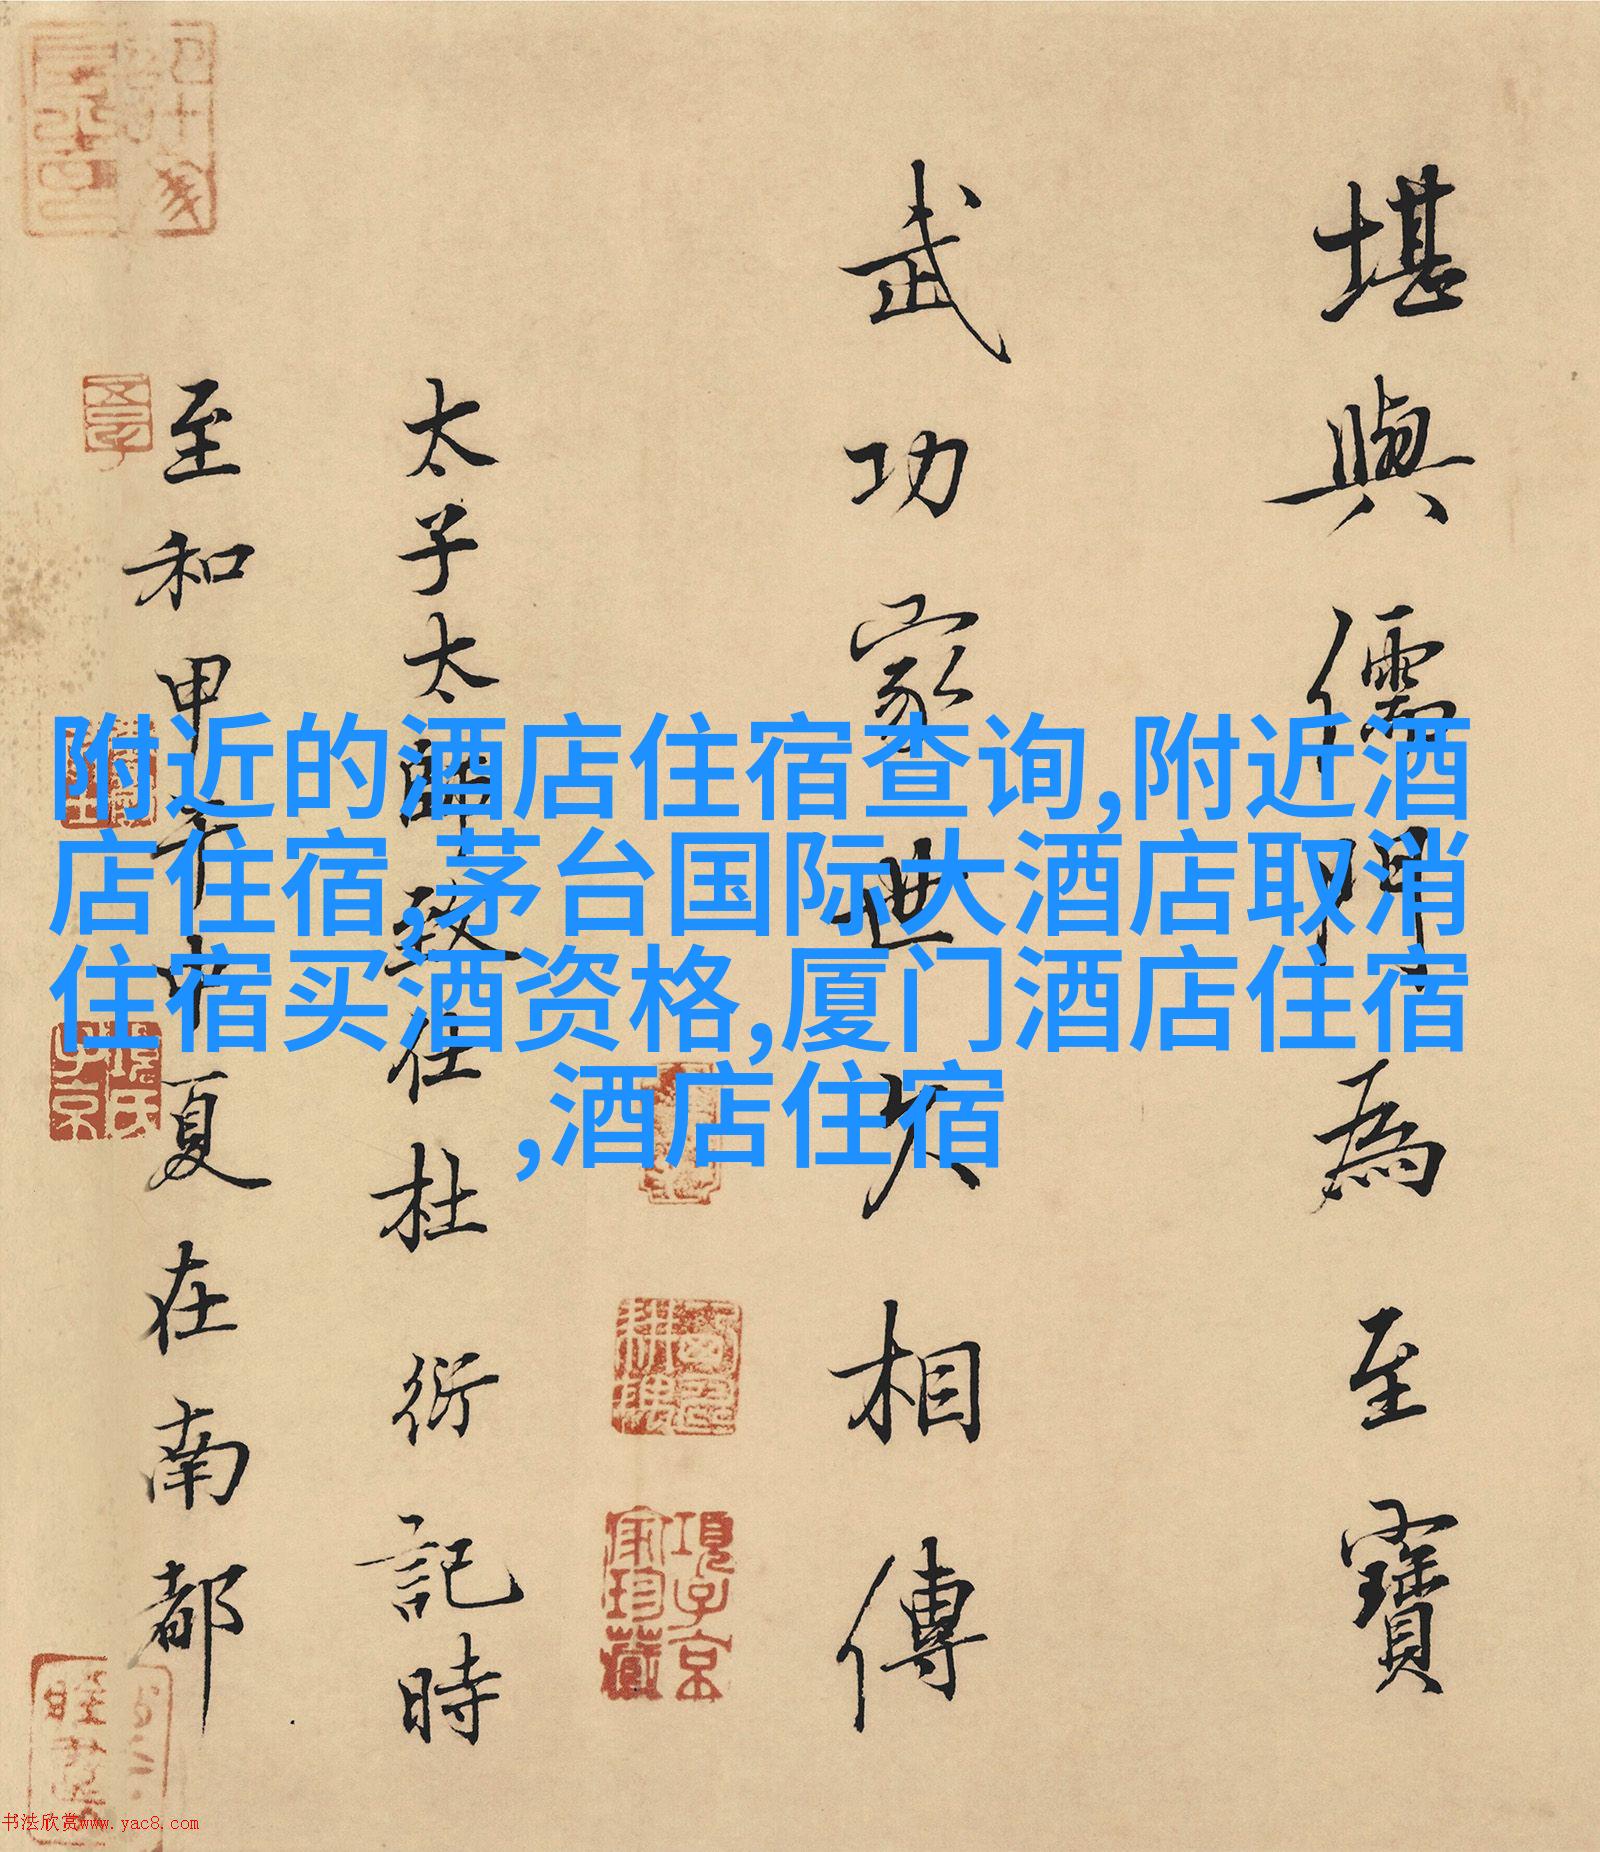 附近的酒店住宿查询,附近酒
店住宿,茅台国际大酒店取消
住宿买酒资格,厦门酒店住宿
,酒店住宿
堪與儒門為至寶
武功家世久相傳
太子太師致仕杜衍記時
至和甲午中夏在南都
項子京家珍藏
項氏子京
书法欣赏www.yac8.com